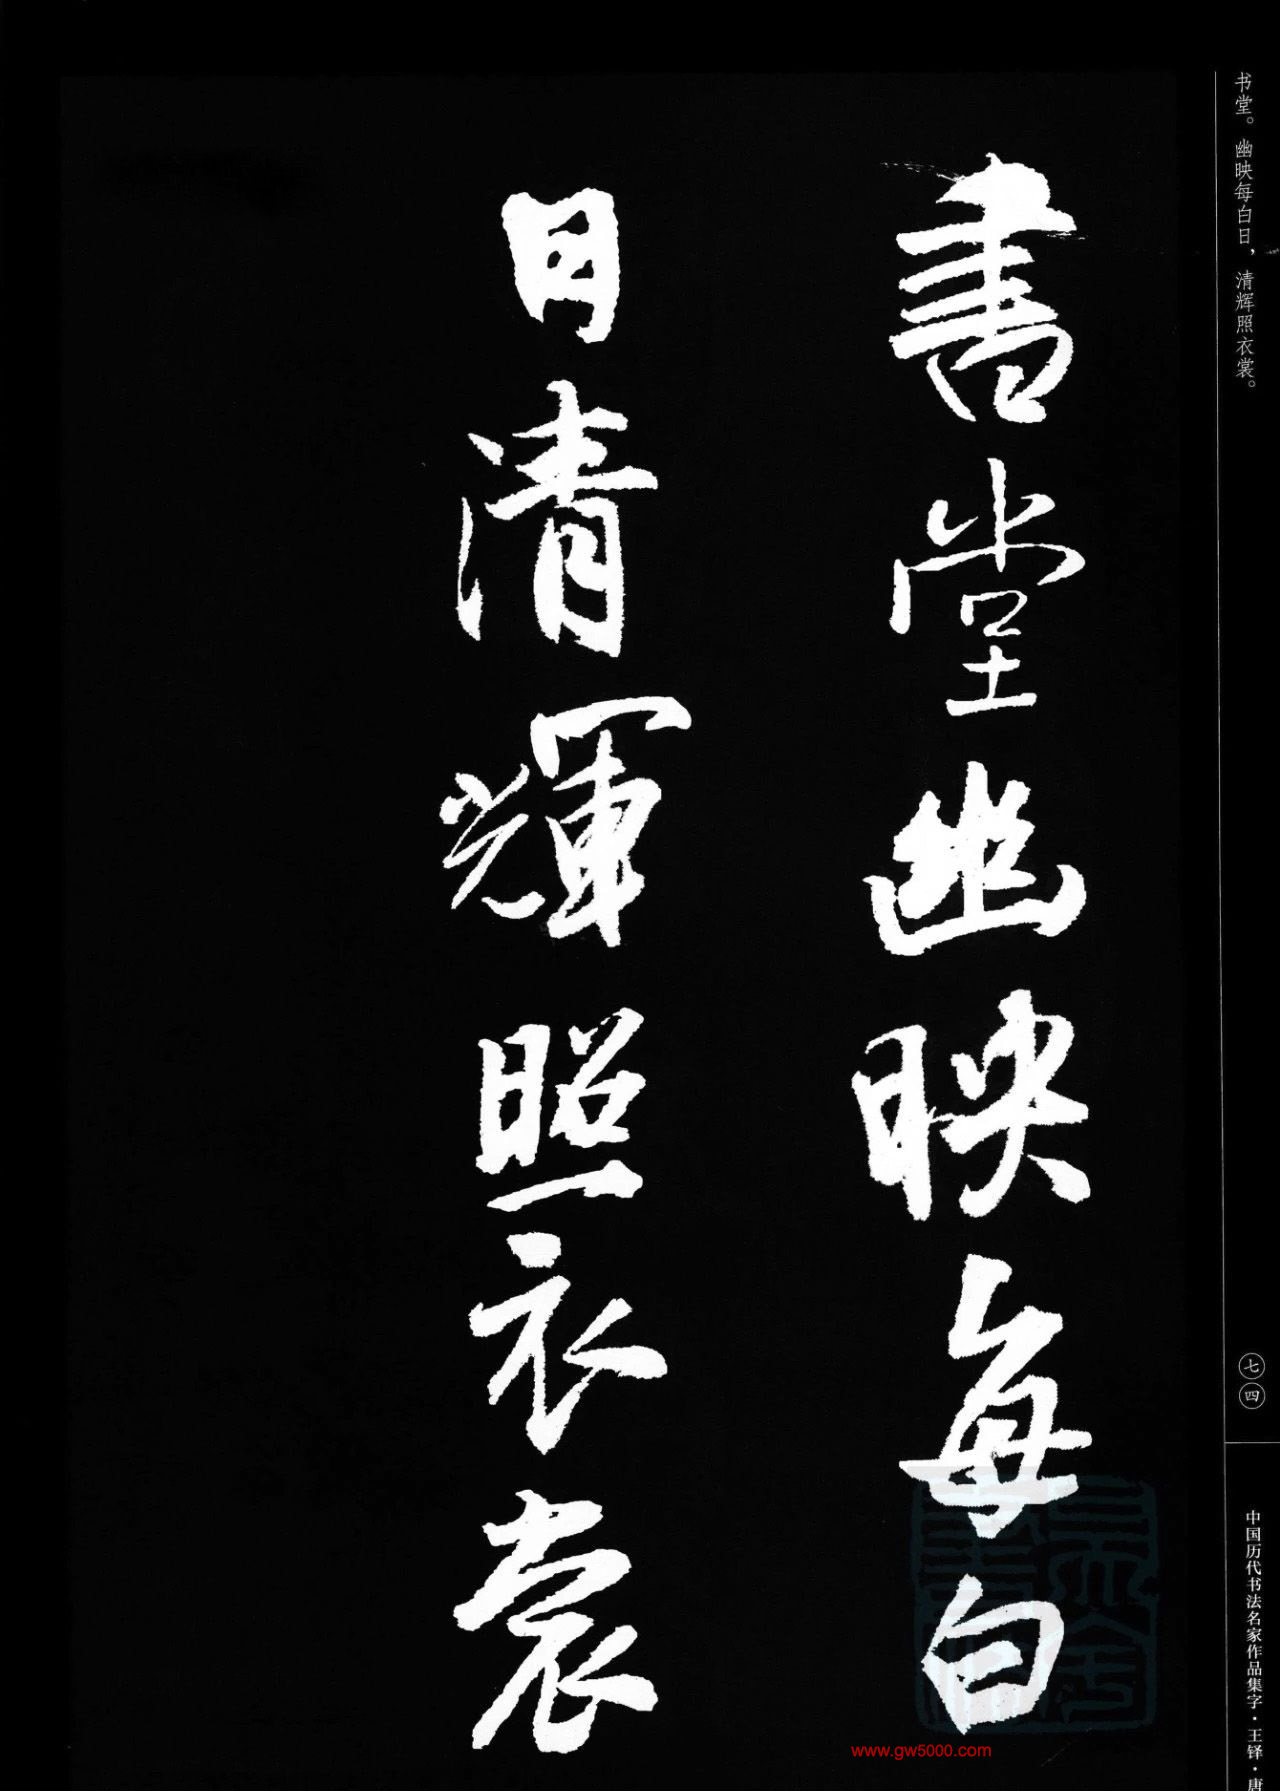 书堂。幽映每白日，清辉照衣裳。
書堂幽映每白
日清輝照衣裳
七四
中国历代书法名家作品集字·王铎·唐
www.gw5000.com